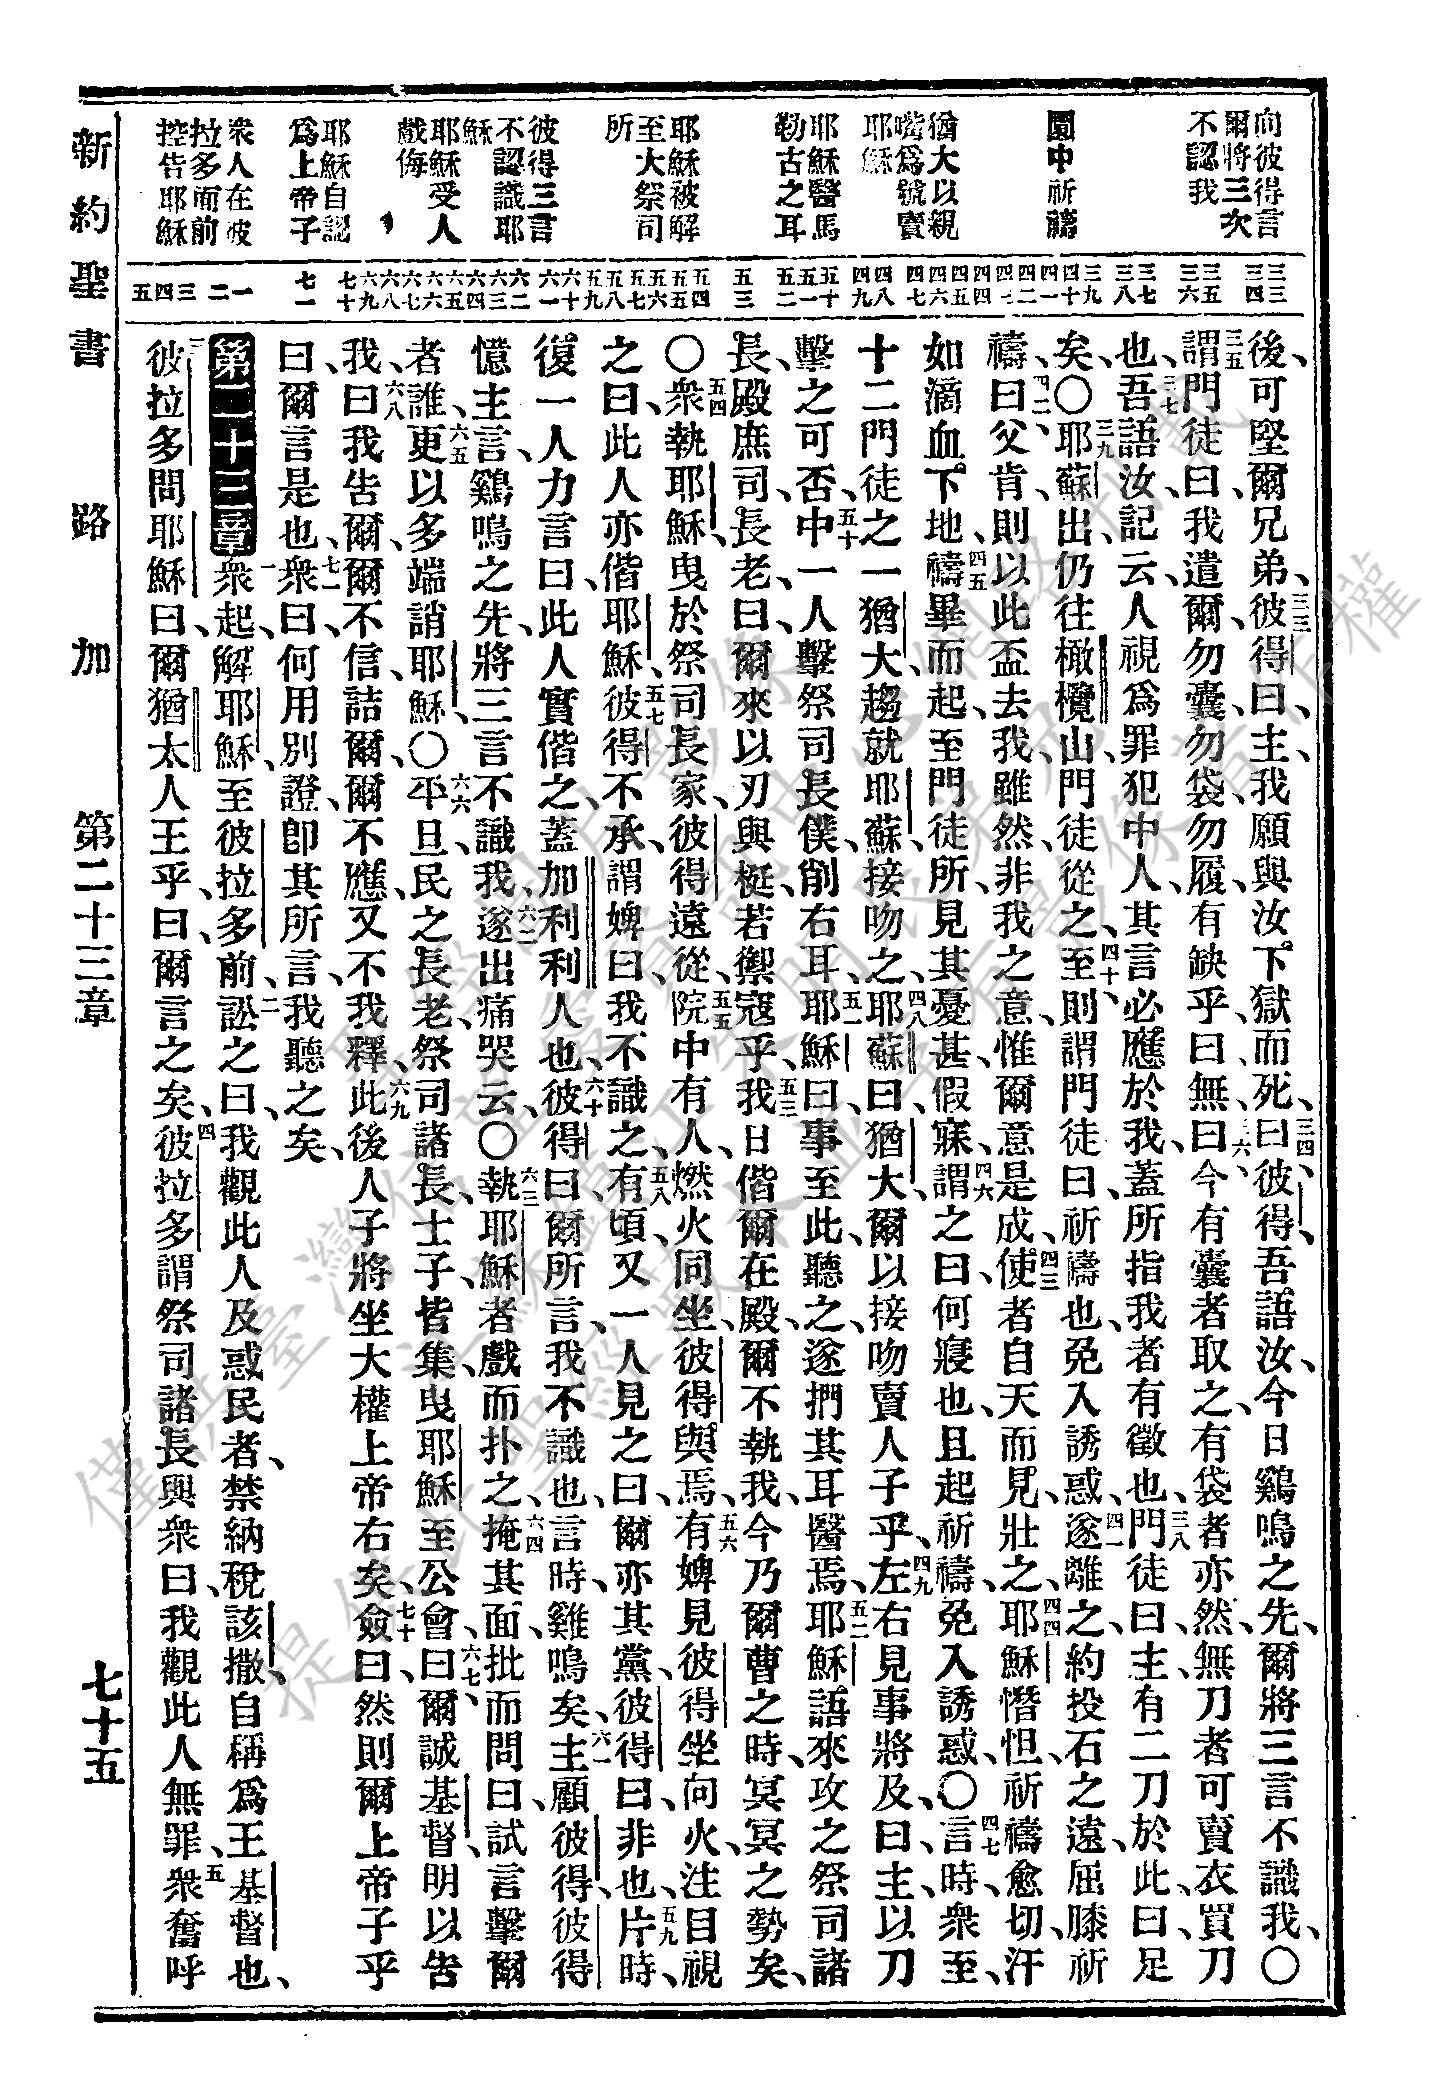 向彼得言
爾將三次
不認我
園中祈禱
猶大以親
嘴爲號賣
耶穌
耶穌醫馬
勒古之耳
耶穌被解
至大祭司
所
彼得三言
不認識耶
穌
耶穌受人
戲侮
耶穌自認
爲上帝子
衆人在彼
拉多面前
控告耶穌
三三
三四
三五
三六
三七
三八
三九
四十
四一
四二
四三
四四
四五
四六
四七
四八
四九
五十
五一
五二
五三
五四
五五
五六
五七
五八
五九
六十
六一
六二
六三
六四
六五
六六
六七
六八
六九
七十
七一
一
二
三
四
五
後、可堅爾兄弟、三三彼得曰、主、我願與汝下獄而死、三四曰、彼得、吾語汝、今日鷄鳴之先、爾將三言不識我、〇
三五謂門徒曰、我遣爾、勿囊、勿袋、勿履、有缺乎、曰、無、三六曰、今有囊者取之、有袋者亦然、無刀者可賣衣買刀
也、三七吾語汝、記云、人視爲罪犯中人、其言必應於我、蓋所指我者有徵也、三八門徒曰、主、有二刀於此、曰、足
矣、〇三九耶蘇出、仍往橄欖山、門徒從之、四十至、則謂門徒曰、祈禱也、免入誘惑、四一遂離之、約投石之遠、屈膝祈
禱、曰、四二父肯、則以此盃去我、雖然、非我之意、惟爾意是成、四三使者自天而見、壯之、四四耶穌憯怛、祈禱愈切、汗
如滴血下地、四五禱畢而起、至門徒所、見其憂甚假寐、四六謂之曰、何寢也、且起祈禱、免入誘惑、〇四七言時、衆至、
十二門徒之一猶大、趨就耶蘇接吻之、四八耶蘇曰、猶大、爾以接吻賣人子乎、四九左右見事將及、曰、主、以刀
擊之可否、五十中一人擊祭司長僕、削右耳、五一耶穌曰、事至此、聽之、遂捫其耳醫焉、五二耶穌語來攻之祭司諸
長、殿庶司、長老曰、爾來以刃與梃、若禦寇乎、五三我日偕爾在殿、爾不執我、今乃爾曹之時、冥冥之勢矣、
〇五四衆執耶穌、曳於祭司長家、彼得遠從、五五院中有人、燃火同坐、彼得與焉、五六有婢見彼得坐向火、注目視
之曰、此人亦偕耶穌、五七彼得不承、謂婢曰、我不識之、五八有頃、又一人見之曰、爾亦其黨、彼得曰、非也、五九片時、
復一人力言曰、此人實偕之、蓋加利利人也、六十彼得曰、爾所言、我不識也、言時、雞鳴矣、六一主顧彼得、彼得
憶主言、鷄鳴之先、將三言不識我、六二遂出痛哭云、〇六三執耶穌者戲而扑之、六四掩其面、批而問曰、試言擊爾
者誰、六五更以多端誚耶穌、〇六六平旦、民之長老、祭司諸長、士子、皆集、曳耶穌至公會、曰、六七爾誠基督、明以告
我、曰、六八我告爾、爾不信、詰爾、爾不應、又不我釋、六九此後人子將坐大權上帝右矣、七十僉曰、然則爾上帝子乎
曰、爾言是也、七一衆曰、何用別證、卽其所言、我聽之矣、
第二十三章 一衆起、解耶穌至彼拉多前、二訟之曰、我觀此人及惑民者、禁納稅該撒、自稱爲王基督也、
三彼拉多問耶穌曰、爾猶太人王乎、曰、爾言之矣、四彼拉多謂祭司諸長與衆曰、我觀此人無罪、五衆奮呼
新約聖書 路加 第二十三章 七十五